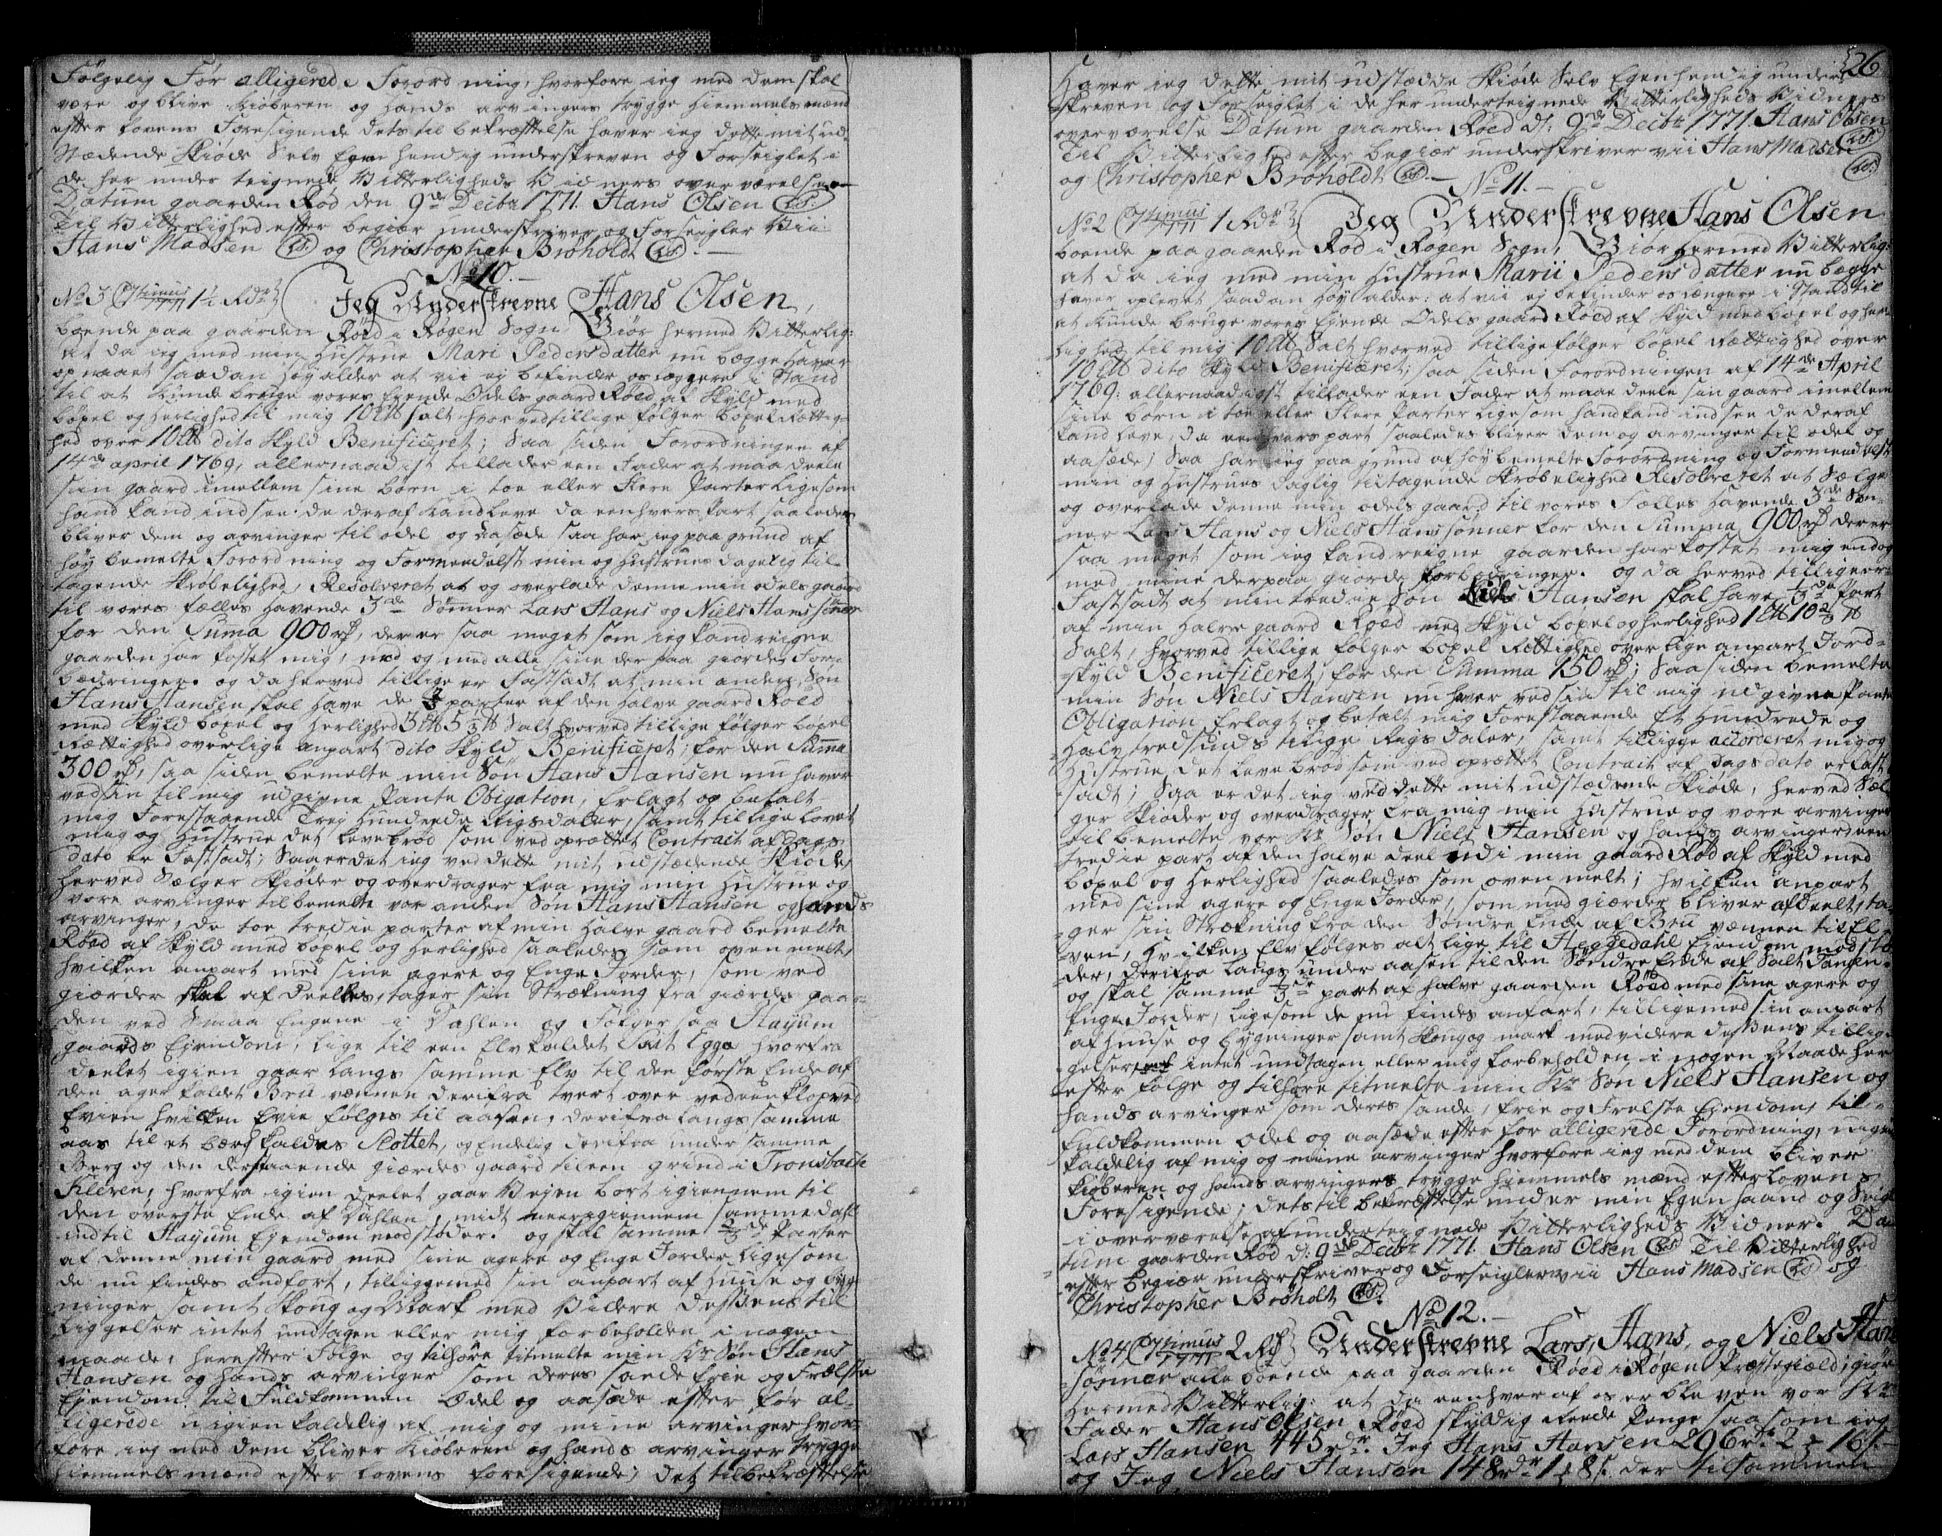 Følgelig Før alligerede Forordning, hvorfore ieg med dem skal
være og blive Kiøberen og hands arvingers trygge Hiemmels mænd
efter Lovens Foresigende dets til bekræftelse haver ieg dette mit ud-
stædende Skiøde Selv Egen hendig underskreven og Forseiglet i
de her under teignede Vitterligheds Vidners overværelse
Datum gaarden Rød den 9de Decbr 1771. Hans Olsen (LS)
Til Vitterlighed efter begiær underskriver og Forseigler Vii
Hans Madsen (LS) og Christopher Broholdt (LS). —
No 10. —
No 3 Ottimus 1771 1½ Rdr Jeg Underskrevne Hans Olsen,
boende paa gaarden Røed i Røgen Sogn Giør hermed Vitterlig:
at da ieg med min Hustrue Mari Pedersdatter nu begge haver
opnaaet saadan høy alder at vii ej befinder os læggere i Stand
til at kunde bruge vores Eyende Odels gaard Røed af Skyld med
bøxel og herlighed til mig 10 Lb Salt hvorved tillige følger bøxel Rættig-
hed over 10 Lb dito Skyld Benificeret; Saa siden Forordningen af
14de april 1769, allernaadigst tillader een Fader at maa deele
siin gaard imellem sine børn i toe eller Flere Parter ligesom
hand kand indsee de deraf kand leve da eenhvers part saaledes
bliver dem og arvinger til odel og aasæde saa har ieg paa grund af
høy bemelte Forordning og Formedelst min og Hustrues dagelig til-
tagende Skrøbelighed, Resolveret at og overlade denne min odels gaard
til vores fælles havende 3de Sønner Lars Hans og Niels Hanssønner
for den Suma 900 rd, der er saa meget som ieg kand reigne
gaarden har kostet mig, med og med alle sine der paa giorde For-
bædringer. og da herved tillige er Fastsadt at min anden Søn
Hans Hansen skal have de ⅔ parter af den halve gaard Røed
med Skyld bøxel og herlighed 3 Lb 5⅓ Salt hvorved tillige følger bøxel
Rættighed overlige anpart dito Skyld Benificeret, for den Summa
300 rd, saa siden bemelte min Søn Hans Hansen nu haver
ved sin til mig udgivne Pante Obligation, Erlagt og betalt
mig Forestaaende Trey Hundrede Rigsdaler, samt tillige lovet
mig og Hustrue det levebrød som ved oprettet Contract af Dags
dato er Fastsadt; Saa er det ieg ved dette mit udstædende Skiøde,
herved Sælger Skiøder og overdrager fra mig min Hustrue og
vore arvinger til bemelte vor anden Søn Hans Hansen og hands
arvinger, de toe tredie parter af min halve gaard bemelte
Røed af Skyld med bøxel og herlighed saaledes som oven melt,
hvilken anpart med sine agere og Enge Jorder, som ved
giærder skal af deelles, tager sin Strækning fra giærdes gaar-
den ved Smaa Engene i Dahlen og Følger saa Hayum
gaards Ejendom, lige til een Elv kaldet Skit Egge hvorfra
deelet igien gaar langs samme Elv til den første Ende af
den ager kaldet Bru vænnen derifra tvert over ved een Klopved
Evien hvilken Evie følges til aasen, derifra langs samme
aas til et bærg kaldes Slottet, og Endelig derifra under samme
Berg og den derstaaende giærdes gaard til een grind i Tronsbacke
Kleven, hvorfra igien deelet gaar Vejen bort igiennem til
den øverste Ende af Dahlen, midt igiennem samme Dahl
ind til Hayum Ejendom modstøder. og skal samme ⅔de Parter
af denne min gaard med sine agere og Enge Jorder ligesom
de nu findes andfort, tilliggemed sin anpart af Huuse og byg-
ninger samt Skoug og Mark med Videre dessens til
liggelser intet undtagen eller mig forbeholden i nogen
maade, herefter Følge og tilhøre titmelte min Kr Søn Hans
Hansen og hands arvinger som deres sande frie og Frælste
Ejendom til Fuldkommen Odel og aasæde efter før al-
ligerede uigien kaldelig af mig og mine arvinger hvor-
fore ieg med dem bliver Kiøberen og hands arvinger trygge
Hiemmels mænd efter lovens foresigende; det til bekræfttelse
526
Haver ieg dette mit udstædde Skiøde Selv Egenhendig under
skreven og Forseiglet i de her underteignede Vitterligheds Vidners
overværelse Datum gaarden Røed d: 9de Decbr 1771. Hans Olsen (LS)
Til Vitterlighed efter begiær underskriver vii Hans Madsen (LS)
og Christopher Broholdt (LS). —
No 11. —
No 2 Ottimus 1771 1 Rdr Jeg Underskrevne Hans Olsen
boende paa gaarden Rød i Røgen Sogn, Giør hermed Vitterlig:
at da ieg med min Hustrue Marii Pedersdatter nu begge
haver oplevet saadan høy alder: at vii ej befinder os længere i Stand til
at kunde bruge vores Ejende Odels gaard Røed af Skyld med bøxel og her-
lighed til mig 10 Lb Salt hvorved tillige følger bøxel Rættighed over
10 Lb dito Skyld Benificeret; saa siden Forordningen af 14de April
1769: allernaadigst tillader een Fader at maae deele sin gaard imellem
sine børn i toe eller Flere Parter ligesom hand kand indsee de deraf
kand leve, da eenhvers part saaledes bliver dem og arvinger til odel og
aasæde; Saa har ieg paa grund af høy bemelte Forordning og Formedelst
min og Hustrues daglig tiltagende Skrøbelighed Resolveret at Sælge
og overlade denne min odels gaard til vores Fælles havende 3de Søn-
ner Lars Hans og Niels Hanssønner for den Summa 900 rd der er
saa meget som ieg kand reigne gaarden har kostet mig endog
med mine derpaa giorde forbedringer. og da herved tillige er
Fastsadt at min tredie Søn Niels Hansen skal have ⅓de Part
af min halve gaard Røed med Skyld bøxel og herlighed 1 Lb 10⅔
Salt, hvorved tillige følger bøxel Rættighed over lige anpart Jord-
skyld Benificeret, for den Summa 150 rd; Saa siden bemelte
min Søn Niels Hansen nu haver ved sin til mig udgivne Pante
Obligation Erlagt og betalt mig Forestaaende Et Hundrede og
Halv tredsinds tiuge Rigsdaler, samt tilligge accorderet mig og
Hustrue, det levebrød som ved oprettet Contract af Dags dato er fast
sadt; Saa er det ieg ved dette mit udstædende Skiøde, herved Sæl
ger Skiøder og overdrager fra mig min Hustrue og vore arvinger
til bemelte vor Kr Søn Niels Hansen og hands arvinger deen
tredie part af den halve deel udi min gaard Rød af Skyld med
bøxel og herlighed saaledes som oven melt; hvilken anpart
med sine agere og Enge Jorder, som med giærder bliver afdeelt, ta-
ger sin Strækning fra den Søndre Ende af Bru vænnen til El-
ven, hvilken Elv følges alt lige til Heggedahl Ejendom modstø-
der, derifra langs under aasen til den Søndre Ende af Salt Tangen.
og skal samme ⅓de part af halve gaarden Røed med sine agere og
Enge Jorder, ligesom de nu findes anfort, tilligemed sin anpart
af Huuse og bygninger samt Skoug og mark med videre dessens tillig-
gelser, intet undtagen eller mig forbeholden i nogen Maade her
efter følge og tilhøre titmelte min Kr Søn Niels Hansen og
hands arvinger som deres sande, frie og Frelste Ejendom, til
fuldkommen Odel og aasæde efter før alligerede Forordning, uigien
kaldelig af mig og mine arvinger hvorfore ieg med dem bliver
kiøberen og hands arvingers trygge hiemmels mænd efter Lovens
Foresigende; dets til bekræftelse under min Egen haand og Seigl
i overværelse af underteignede Vitterligheds Vidner. Da-
tum gaarden Rød d: 9de Decbr 1771. Hans Olsen (LS) Til Vitterlighed
efter begiær underskriver og Forseigler vii Hans Madsen (LS) og
Christopher Broholdt (LS).
No 12. —
No 4 Ottimus 1771 2 Rd Underskrevne Lars, Hans, og Niels Hans
Sønner alle boende paa gaarden Røed i Røgen Præstegield; giør
hermed Vitterlig: at da eenhver af os er bleven vor Kr
Fader Hans Olsen Røed skyldig Reede Penge saasom ieg
Lars Hansen 445 rdr. Jeg Hans Hansen 296 rd 2 16 s.
og Jeg Niels Hansen 148 rdr 1 8 s. der tilsammen